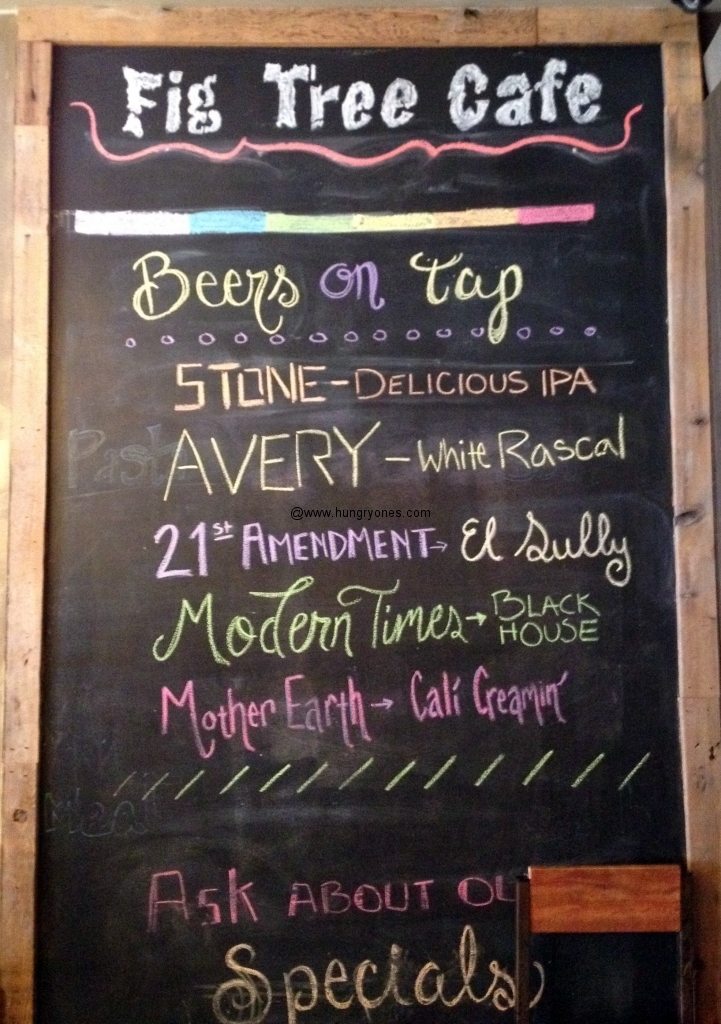 Fig Tree Cafe
Beers on Tap
STONE - DELICIOUS IPA
AVERY - White Rascal
@www.hungryones.com
21st AMENDMENT → El Sully
Modern Times → BLACK HOUSE
Mother Earth → Cali Creamin'
ASK ABOUT
Specials